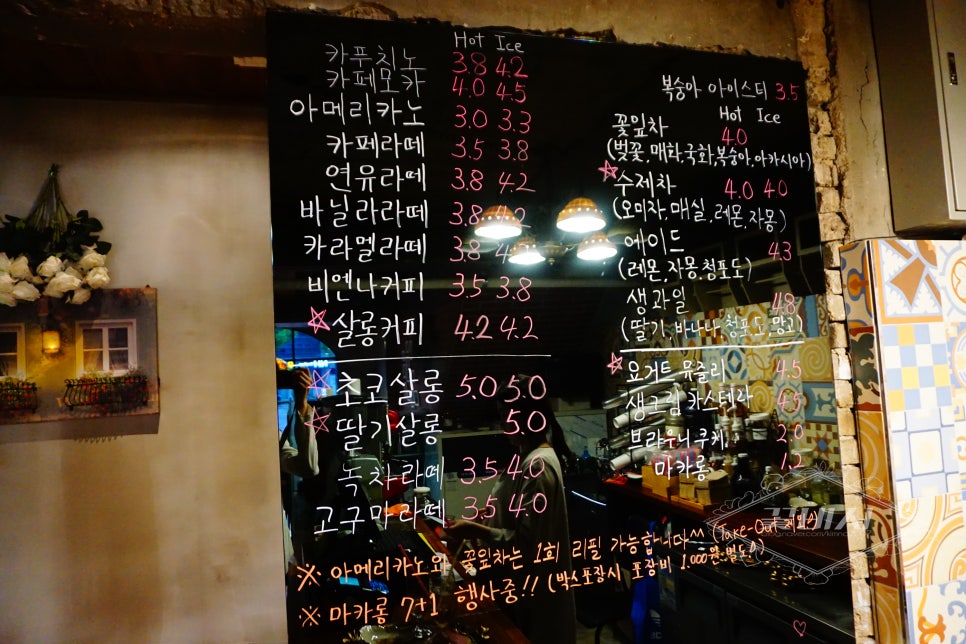 Hot Ice
카푸치노 3.8 4.2
카페모카 4.0 4.5
아메리카노 3.0 3.3
카페라떼 3.5 3.8
연유라떼 3.8 4.2
바닐라라떼 3.8 4.2
카라멜라떼 3.8
비엔나커피 3.5 3.8
☆살롱커피 4.2 4.2
☆초코살롱 5.0 5.0
☆딸기살롱 5.0
녹차라떼 3.5 4.0
고구마라떼 3.5 4.0
복숭아 아이스티 3.5
Hot Ice
꽃잎차 4.0
(벚꽃, 매화, 국화, 복숭아, 아카시아)
☆수제차 4.0 4.0
(오미자, 매실, 레몬, 자몽)
에이드 4.3
(레몬, 자몽, 청포도)
생과일 4.8
(딸기, 바나나, 청포도, 망고)
☆요거트 뮤즐리 4.5
생크림 카스테라 4.5
브라우니쿠키 2.0
마카롱 1.2
※ 아메리카노와 꽃잎차는 1회 리필 가능합니다^^ (Take-Out 제외)
※ 마카롱 7+1 행사중!! (박스포장시 포장비 1,000원 별도)